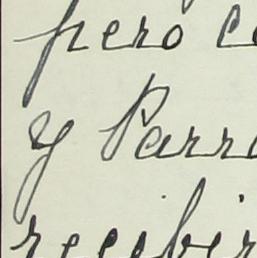 pero c
y Parr
recibir